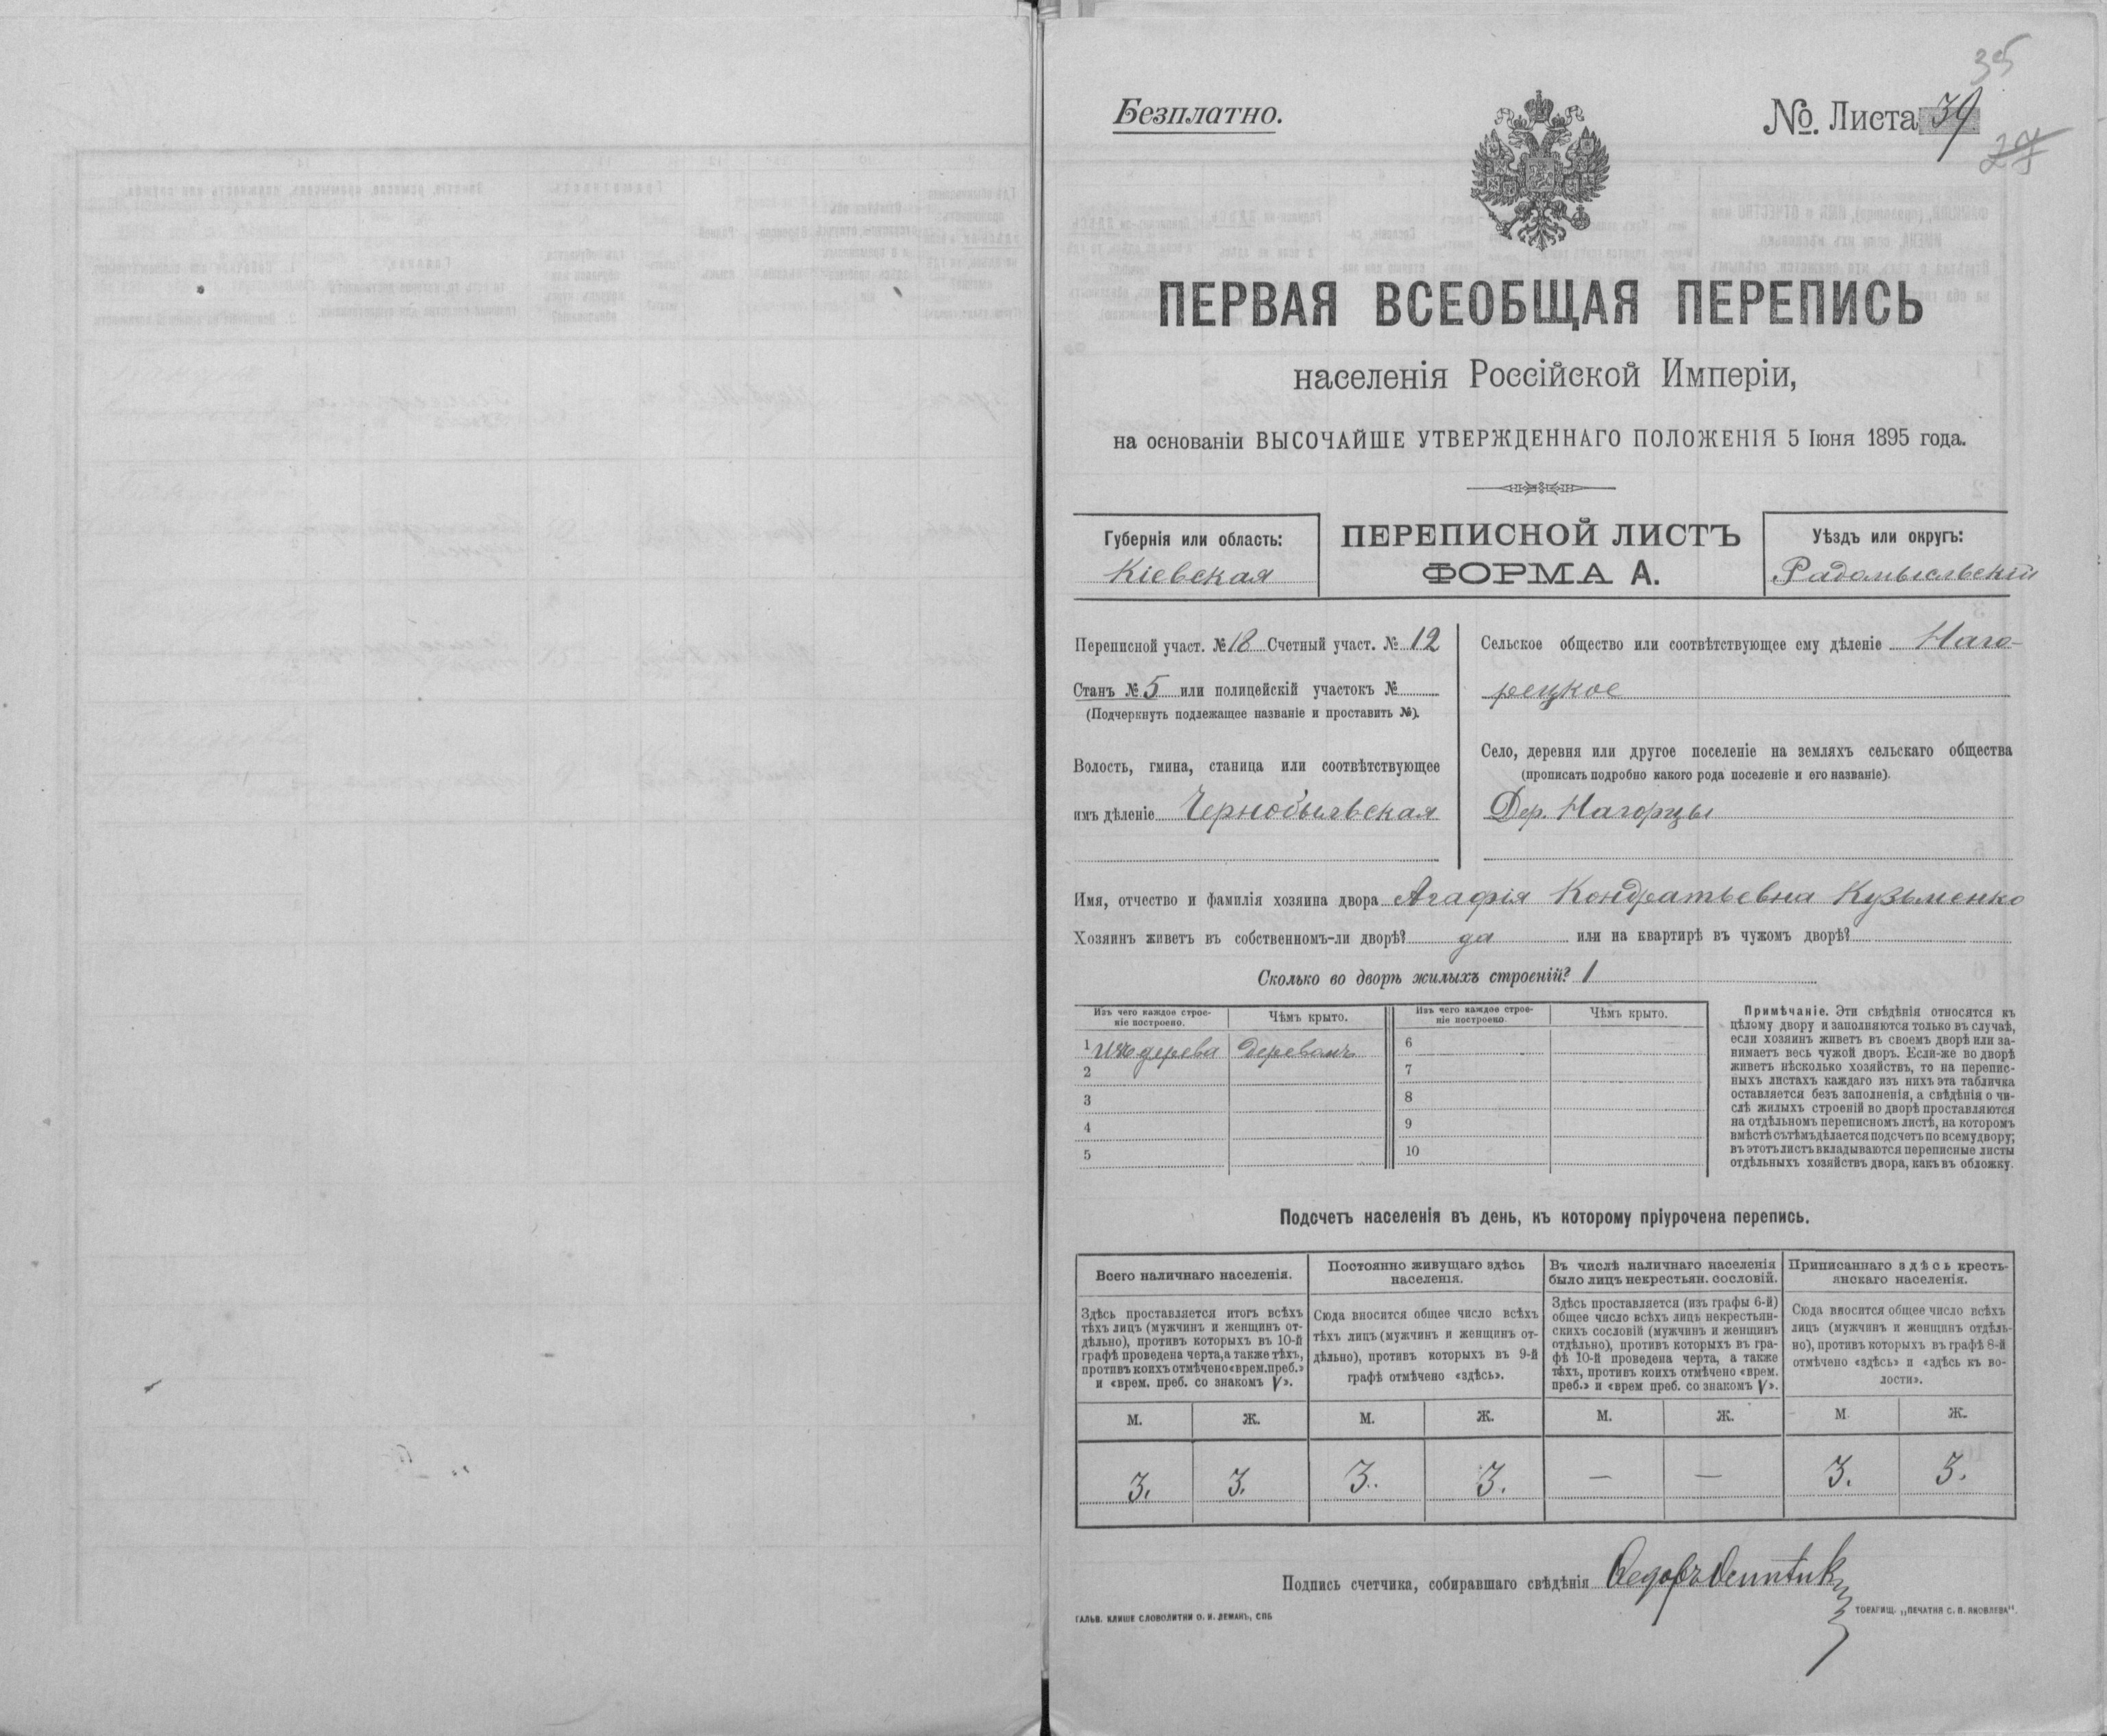 35
Безплатно.
№. Листа 39
27
ПЕРВАЯ ВСЕОБЩАЯ ПЕРЕПИСЬ
населенія Россійской Имперіи,
на основаніи ВЫСОЧАЙШЕ УТВЕРЖДЕННАГО ПОЛОЖЕНІЯ 5 Іюня 1895 года.
Губернія или область:
Кіевская
ПЕРЕПИСНОЙ ЛИСТЪ
ФОРМА А.
Уѣздъ или округъ:
Радомысльскій
Переписной участ. № 18 Счетный участ. № 12
Станъ № 5 или полицейскій участокъ №
(Подчеркнуть подлежащее названіе и проставить №).
Волость, гмина, станица или соотвѣтствующее
имъ дѣленіе Чернобыльская
Сельское общество или соотвѣтствующее ему дѣленіе Наго-
рецкое
Село, деревня или другое поселеніе на земляхъ сельскаго общества
(прописать подробно какого рода поселеніе и его названіе).
Дер. Нагорцы
Имя, отчество и фамилія хозяина двора Агафія Кондратьевна Кузьменко
Хозяинъ живетъ въ собственномъ-ли дворѣ? да или на квартирѣ въ чужомъ дворѣ?
Сколько во дворѣ жилыхъ строеній? 1
Изъ чего каждое строе-
ніе построено.
Чѣмъ крыто.
Изъ чего каждое строе-
ніе построено.
Чѣмъ крыто.
1 изъ дерева деревомъ 6
2 7
3 8
4 9
5 10
Примѣчаніе. Эти свѣдѣнія относятся къ
цѣлому двору и заполняются только въ случаѣ,
если хозяинъ живетъ въ своемъ дворѣ или за-
нимаетъ весь чужой дворъ. Если-же во дворѣ
живетъ нѣсколько хозяйствъ, то на перепис-
ныхъ листахъ каждаго изъ нихъ эта табличка
оставляется безъ заполненія, а свѣдѣнія о чи-
слѣ жилыхъ строеній во дворѣ проставляются
на отдѣльномъ переписномъ листѣ, на которомъ
вмѣстѣ съ тѣмъ дѣлается подсчетъ по всему двору;
въ этотъ листъ вкладываются переписные листы
отдѣльныхъ хозяйствъ двора, какъ въ обложку.
Подсчетъ населенія въ день, къ которому пріурочена перепись.
Всего наличнаго населенія.
Здѣсь проставляется итогъ всѣхъ
тѣхъ лицъ (мужчинъ и женщинъ от-
дѣльно), противъ которыхъ въ 10-й
графѣ проведена черта, а также тѣхъ,
противъ коихъ отмѣчено «врем. преб.»
и «врем. преб. со знакомъ V».
Постоянно живущаго здѣсь
населенія.
Сюда вносится общее число всѣхъ
тѣхъ лицъ (мужчинъ и женщинъ от-
дѣльно), противъ которыхъ въ 9-й
графѣ отмѣчено «здѣсь».
Въ числѣ наличнаго населенія
было лицъ некрестьян. сословій.
Здѣсь проставляется (изъ графы 6-й)
общее число всѣхъ лицъ некрестьян-
скихъ сословій (мужчинъ и женщинъ
отдѣльно), противъ которыхъ въ гра-
фѣ 10-й проведена черта, а также
тѣхъ, противъ коихъ отмѣчено «врем.
преб.» и «врем преб. со знакомъ V».
Приписаннаго здѣсь кресть-
янскаго населенія.
Сюда вносится общее число всѣхъ
лицъ (мужчинъ и женщинъ отдѣль-
но), противъ которыхъ въ графѣ 8-й
отмѣчено «здѣсь» и «здѣсь къ во-
лости».
М. Ж. М. Ж. М. Ж. М Ж.
3. 3. 3. 3. — — 3. 3.
Подпись счетчика, собиравшаго свѣдѣнія Ѳедоръ
ГАЛЬВ. КЛИШЕ СЛОВОЛИТНИ О. И. ЛЕМАНЪ, СПБ
ТОВАРИЩ. „ПЕЧАТНЯ С. П. ЯКОВЛЕВА“.